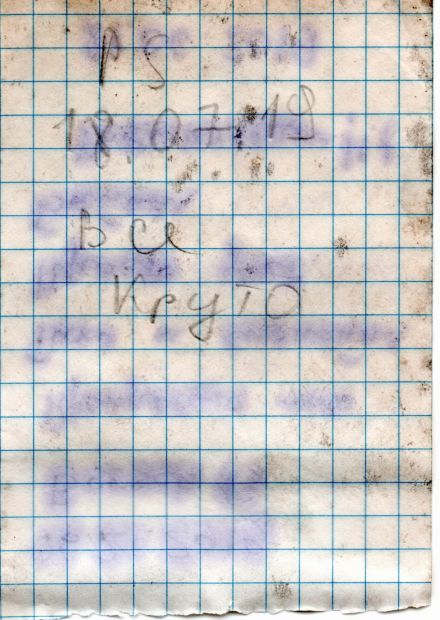 PS
18.07.19
все
круто